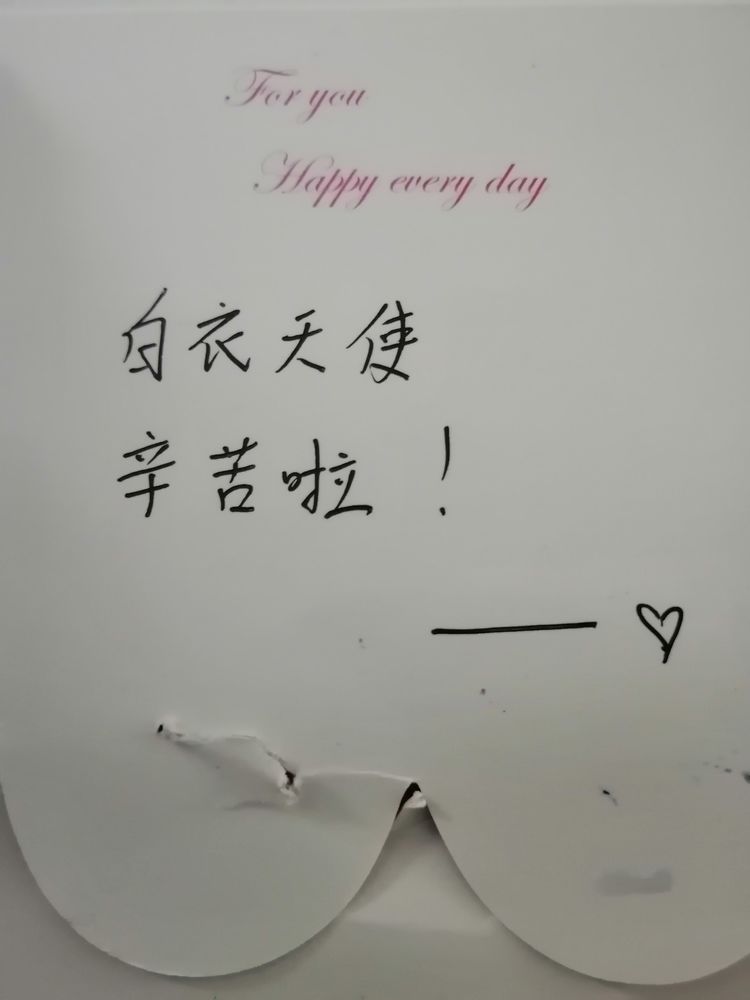 For you
Happy every day
白衣天使
辛苦啦！
—— ♡